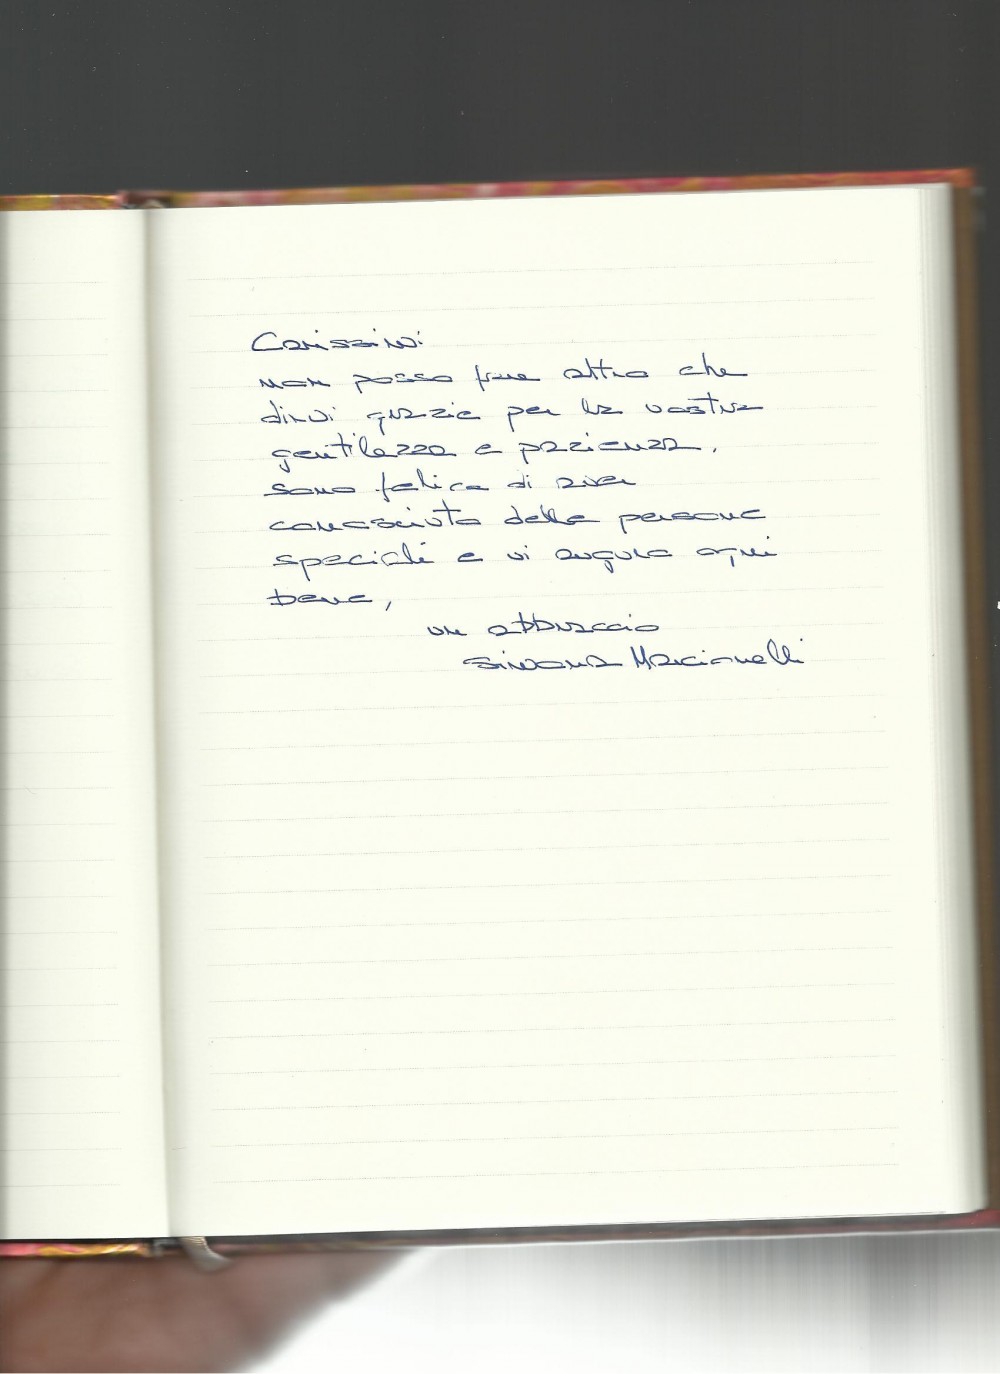 Carissimi
non posso fare altro che
dirvi grazie per la vostra
gentilezza e pazienza,
sono felice di aver
conosciuto delle persone
speciali e vi auguro ogni
bene,
un abbraccio
Simona Marcianelli